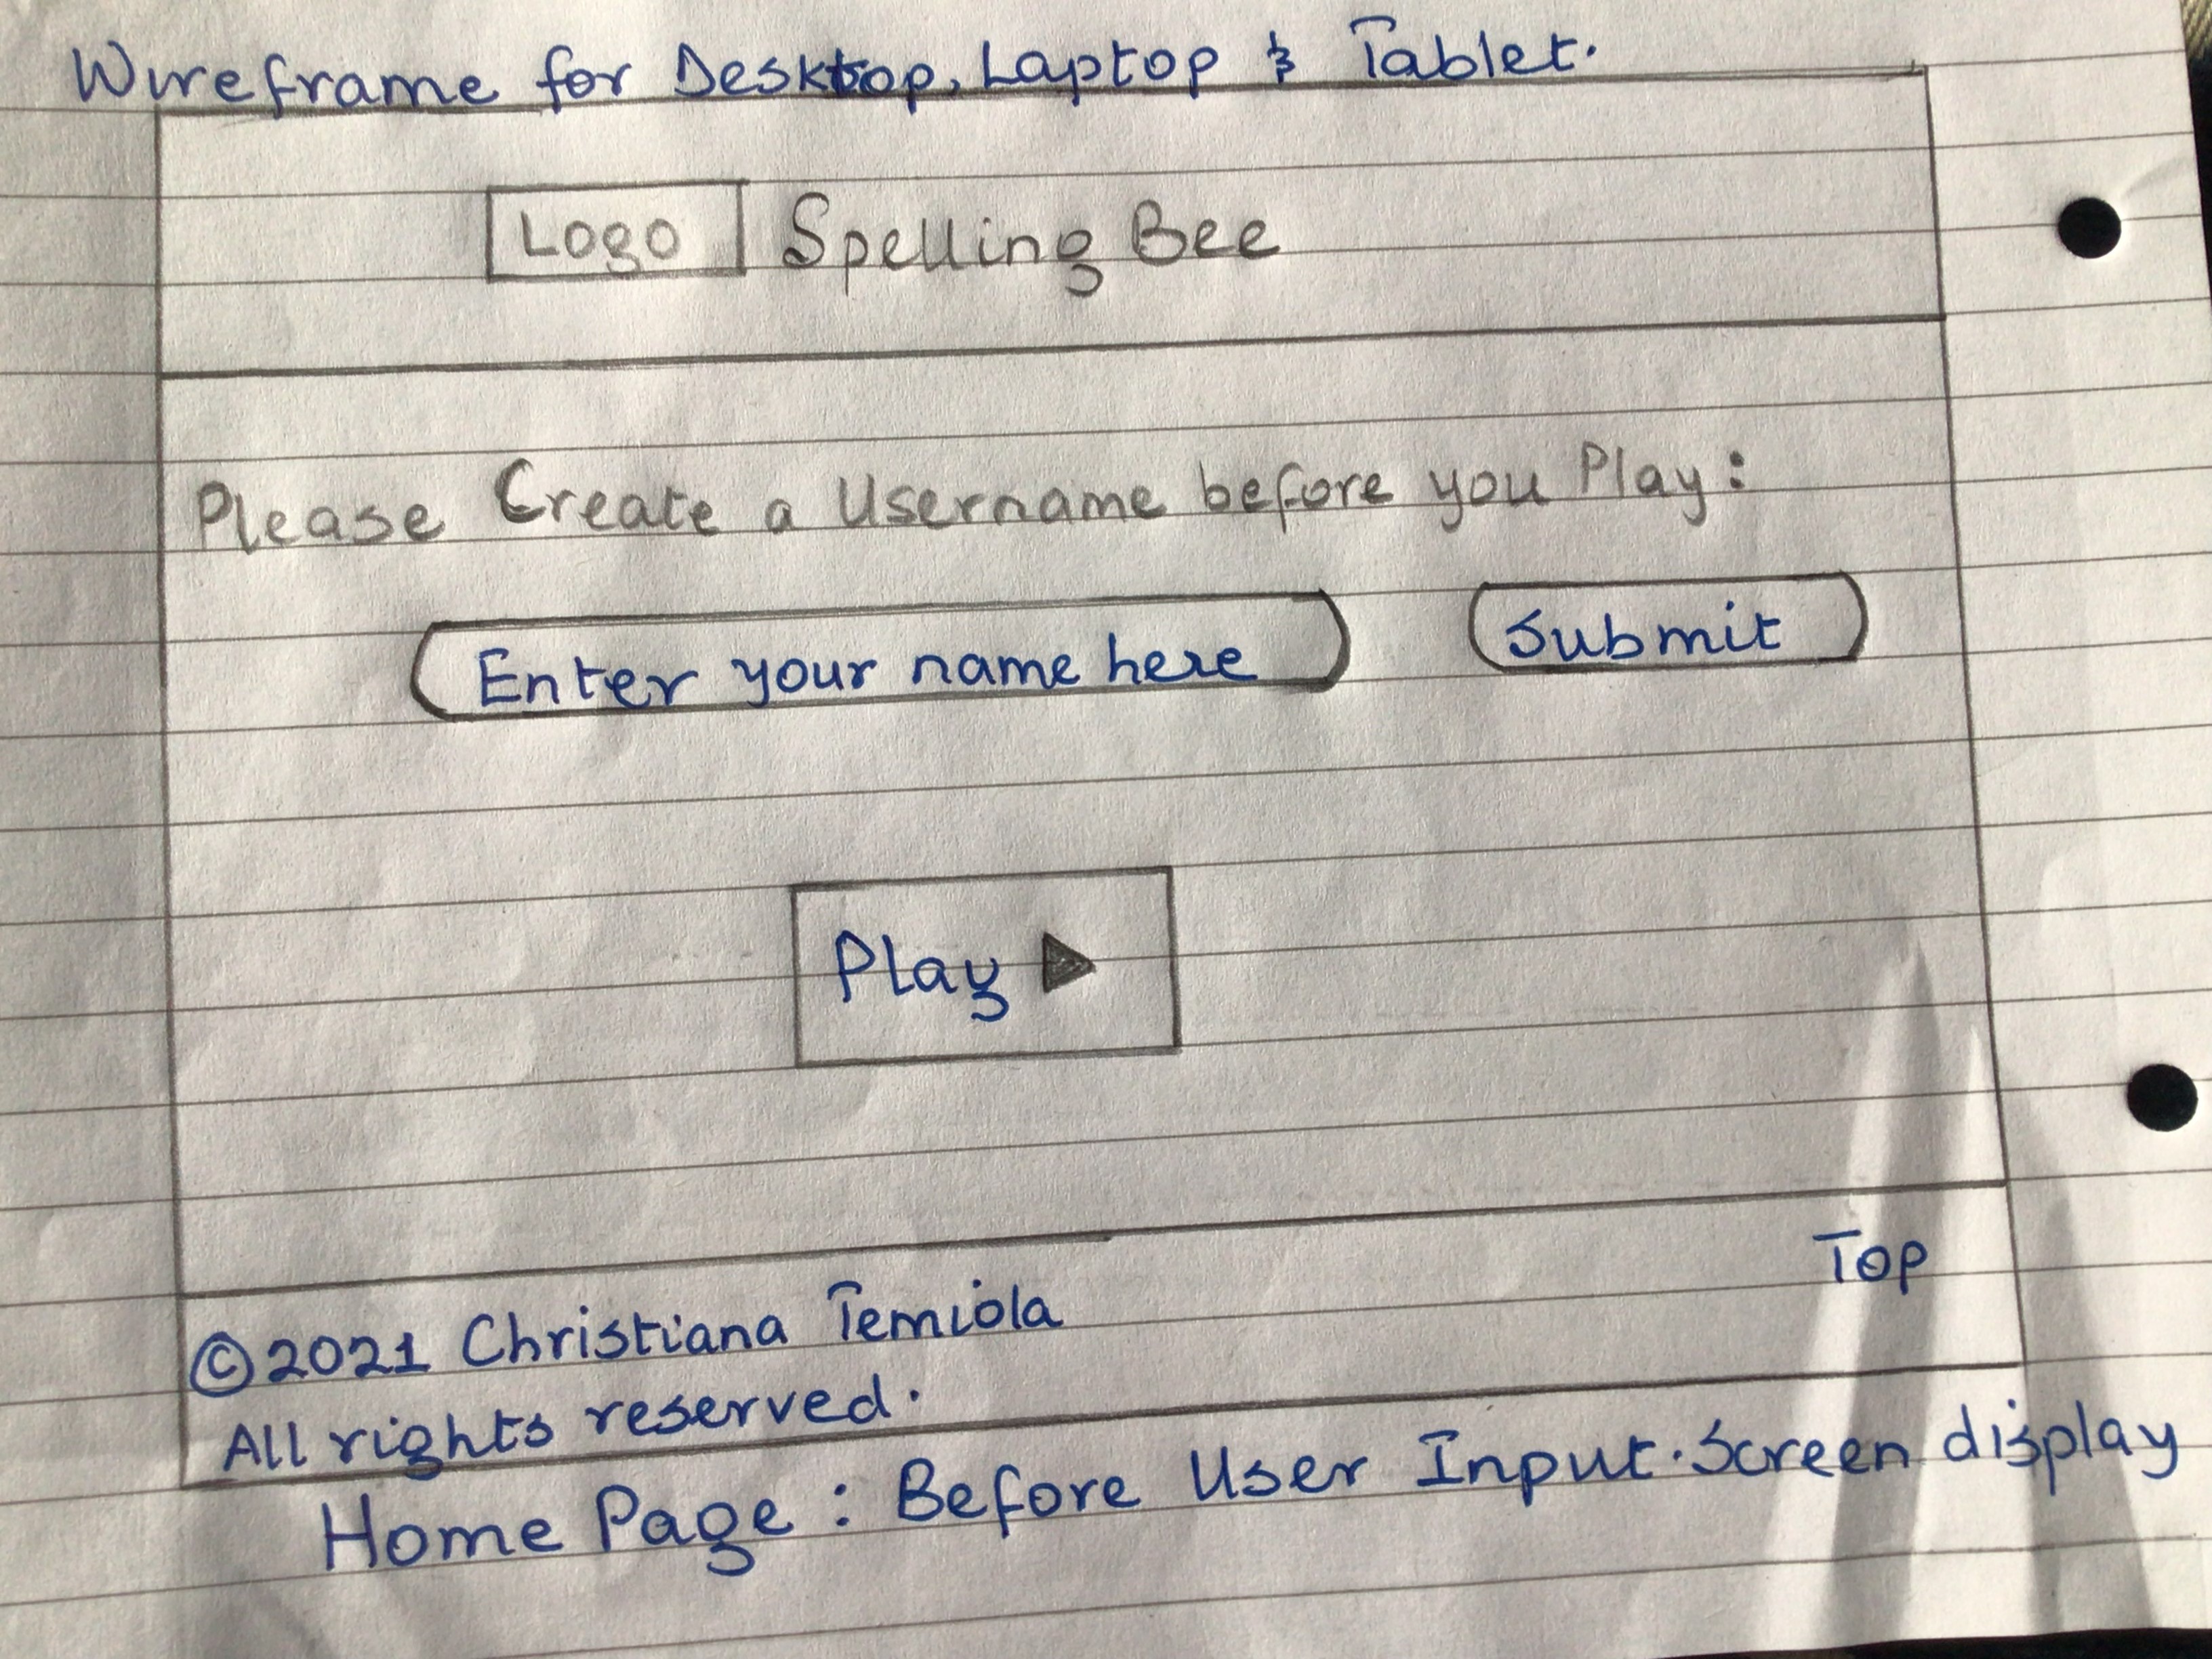 Wireframe for Desktop, Laptop & Tablet.
Logo Spelling Bee
Please Create a Username before you Play:
Enter your name here Submit
Play ▶
Top
©2021 Christiana Temiola
All rights reserved.
Home Page: Before User Input. Screen display